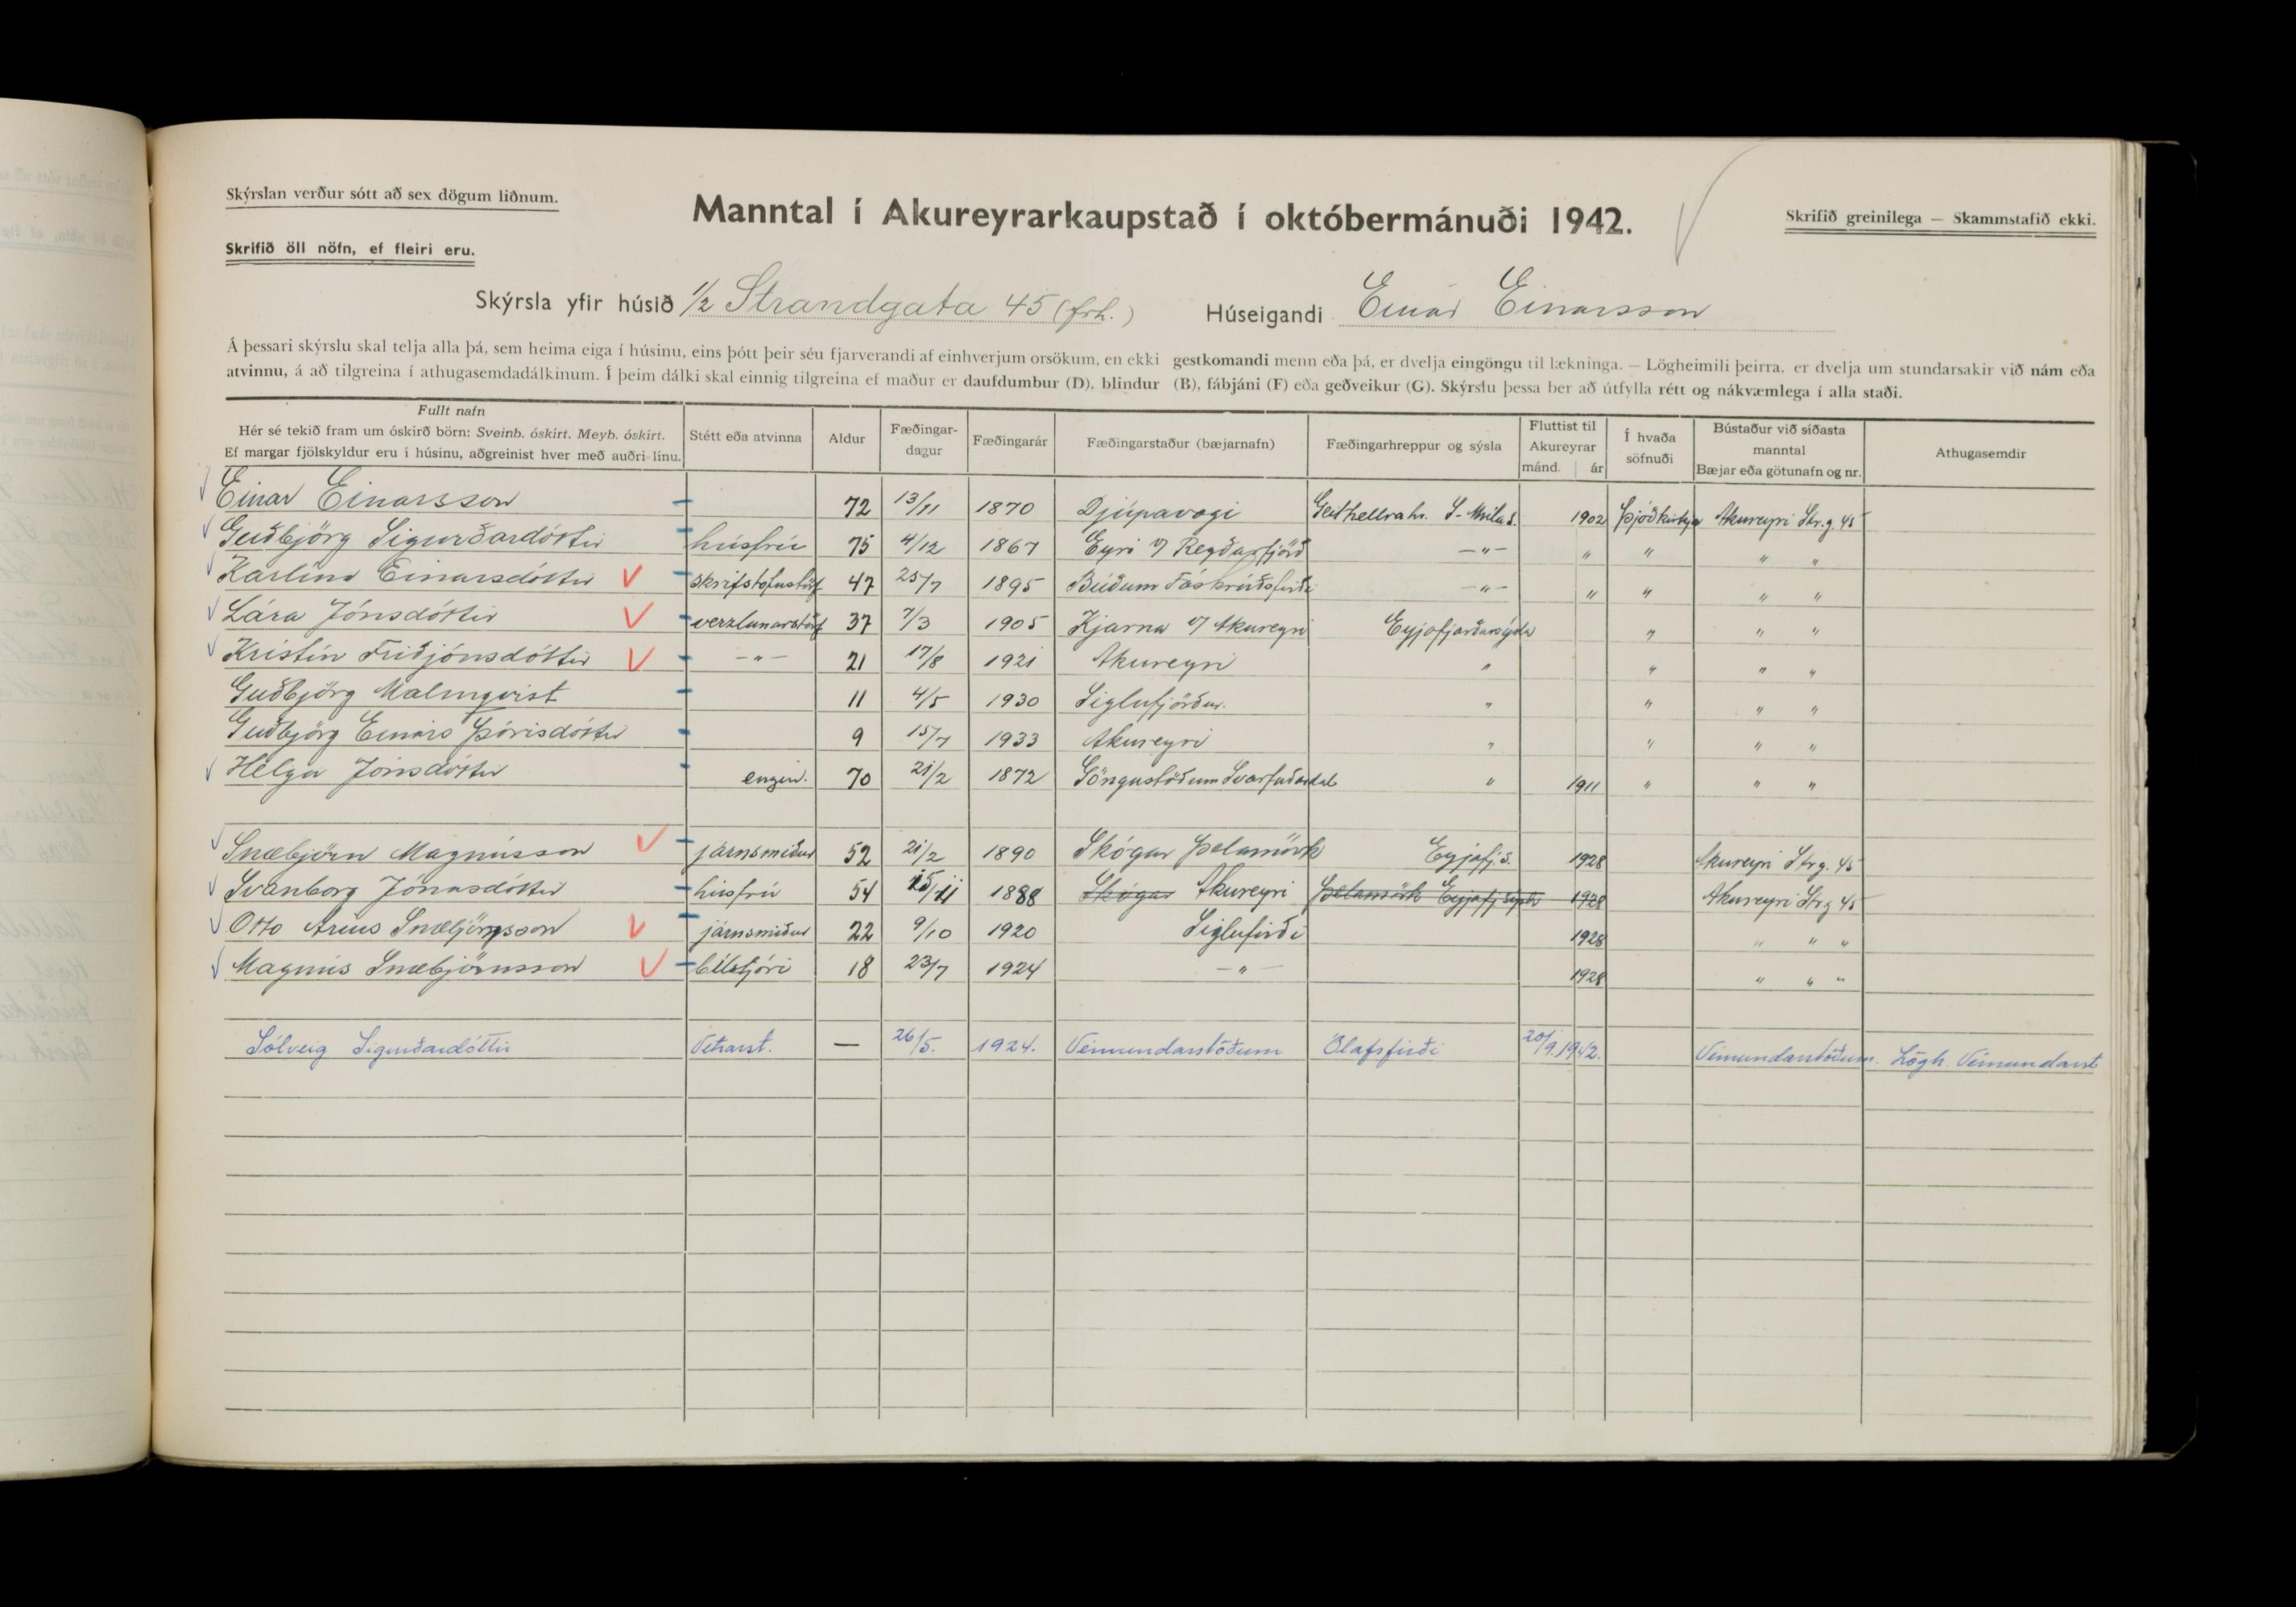 Skýrslan verður sótt að sex dögum liðnum.
Manntal í Akureyrarkaupstað í októbermánuði 1942.
Skrifið greinilega — Skammstafið ekki.
Skrifið öll nöfn, ef fleiri eru.
Skýrsla yfir húsið 1/2 Strandgata 45 (frh.) Húseigandi Einar Einarsson
Á þessari skýrslu skal telja alla þá, sem heima eiga í húsinu, eins þótt þeir séu fjarverandi af einhverjum orsökum, en ekki gestkomandi menn eða þá, er dvelja eingöngu til lækninga. — Lögheimili þeirra. er dvelja um stundarsakir við nám eða
atvinnu, á að tilgreina í athugasemdadálkinum. Í þeim dálki skal einnig tilgreina ef maður er daufdumbur (D), blindur (B), fábjáni (F) eða geðveikur (G). Skýrslu þessa ber að útfylla rétt og nákvæmlega í alla staði.
Fullt nafn
Hér sé tekið fram um óskírð börn: Sveinb. óskírt. Meyb. óskírt.
Ef margar fjölskyldur eru í húsinu, aðgreinist hver með auðri línu.
Stétt eða atvinna
Aldur
Fæðingar-
dagur
Fæðingarár
Fæðingarstaður (bæjarnafn)
Fæðingarhreppur og sýsla
Fluttist til
Akureyrar
mánd. ár
Í hvaða
söfnuði
Bústaður við síðasta
manntal
Bæjar eða götunafn og nr.
Athugasemdir
Einar Einarsson 72 13/11 1870 Djúpavogi Geithellrahr. S-Múlas. 1902 Þjóðkirkja Akureyri Str.g. 45
Guðbjörg Sigurðardóttir húsfrú 75 4/12 1867 Eyri v/ Reyðarfjörð —"— " " " "
Karlína Einarsdóttir skrifstofustörf 47 25/7 1895 Búðum Fáskrúðsfirði —"— " " " "
Lára Jónsdóttir verzlunarstörf 37 7/3 1905 Kjarna v/ Akureyri Eyjafjarðarsýsla " " "
Kristín Friðjónsdóttir —"— 21 17/8 1921 Akureyri " " " "
Guðbjörg Malmqvist 11 4/5 1930 Siglufjörður. " " " "
Guðbjörg Einars Þórisdóttir 9 15/7 1933 Akureyri " " " "
Helga Jónsdóttir engin. 70 21/2 1872 Göngustöðum Svarfaðardal " 1911 " " "
Snæbjörn Magnússon járnsmiður 52 21/2 1890 Skógar Þelamörk Eyjafj.s. 1928 Akureyri Strg. 45
Svanborg Jónasdóttir húsfrú 54 15/11 1888 Skógar Akureyri Þelamörk Eyjafj.sýsla 1928 Akureyri Strg 45
Otto Snæbjörnsson járnsmiður 22 9/10 1920 Siglufirði 1928 " " "
Magnús Snæbjörnsson bílstjóri 18 23/7 1924 —"— 1928 " " "
Sólveig Sigurðardóttir Vetrarst. — 26/5. 1924. Vémundarstöðum Ólafsfirði 20/9. 1942. Vémundarstöðum. Lögh. Vémundarst